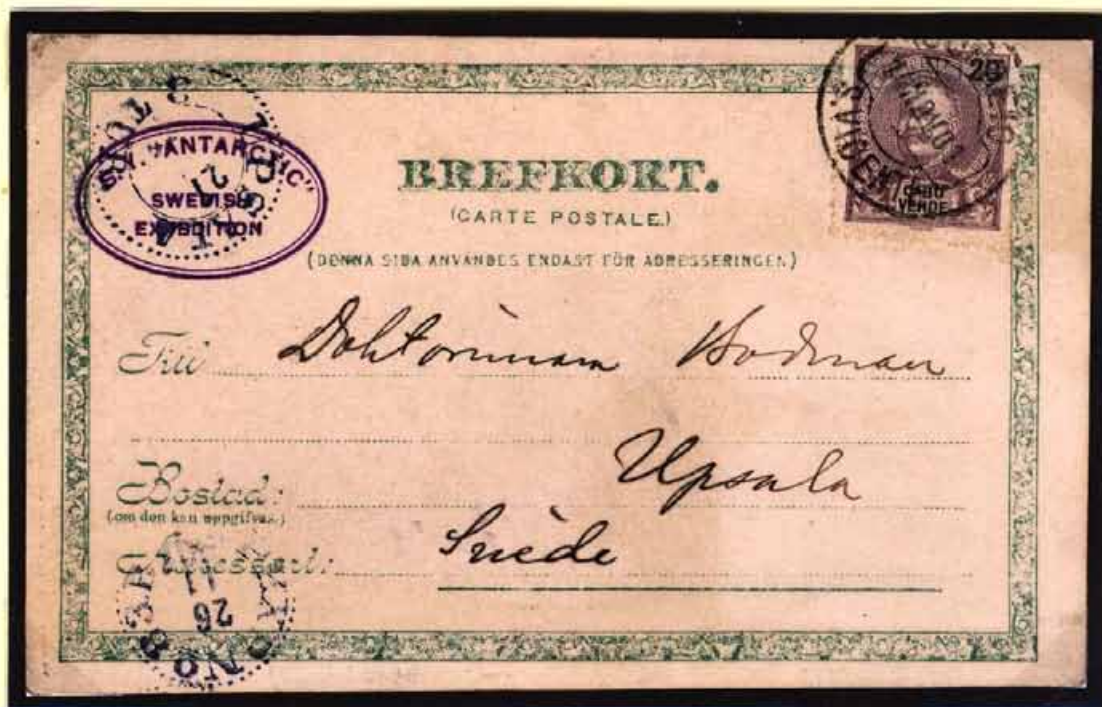 S.Y. "ANTARCTIC"
SWEDISH
EXPEDITION
21
BREFKORT.
(CARTE POSTALE.)
(DENNA SIDA ANVANDES ENDAST FÖR ADRESSERINGEN.)
CABO
VERDE
S. VICENTE
Till Doktorinnan Bodman
Upsala
Bostad:
(om den kan uppgifvas.)
Adressort: Suède
26
11